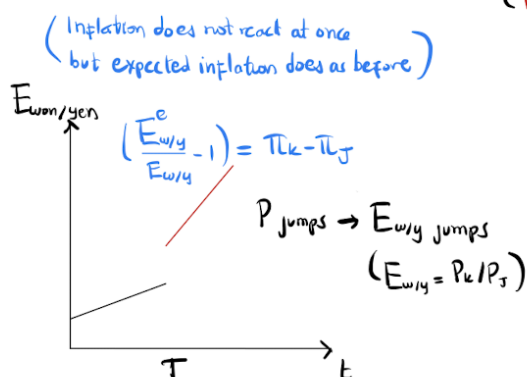 (Inflation does not react at once
but expected inflation does as before)
E won/yen
(E^e w/y / E w/y - 1) = πK - πJ
P jumps → E w/y jumps
(E w/y = PK / PJ)
T
t